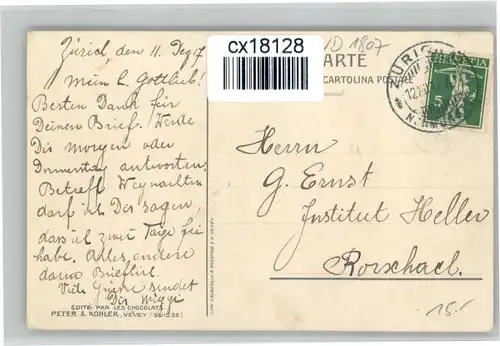 cx18128
D 1807
CARTE
CARTOLINA POSTALE
Zürich, den 11. Dez. 17
Mein l. Gottlieb!
Besten Dank für
Deinen Brief. Werde
Dir morgen oder
Donnerstag antworten.
Betreff Weynachten
darf ich Dir sagen,
dass ich zwei Tage frei
habe. Alles andere
dann Brieflich.
Viele Grüsse sendet
Dir
ÉDITÉ PAR LES CHOCOLATS
PETER & KOHLER, VEVEY (SUISSE)
ZÜRICH
12.XII
HELVETIA
5
Herrn
G. Ernst
Institut Heller
Rorschach.
15.-